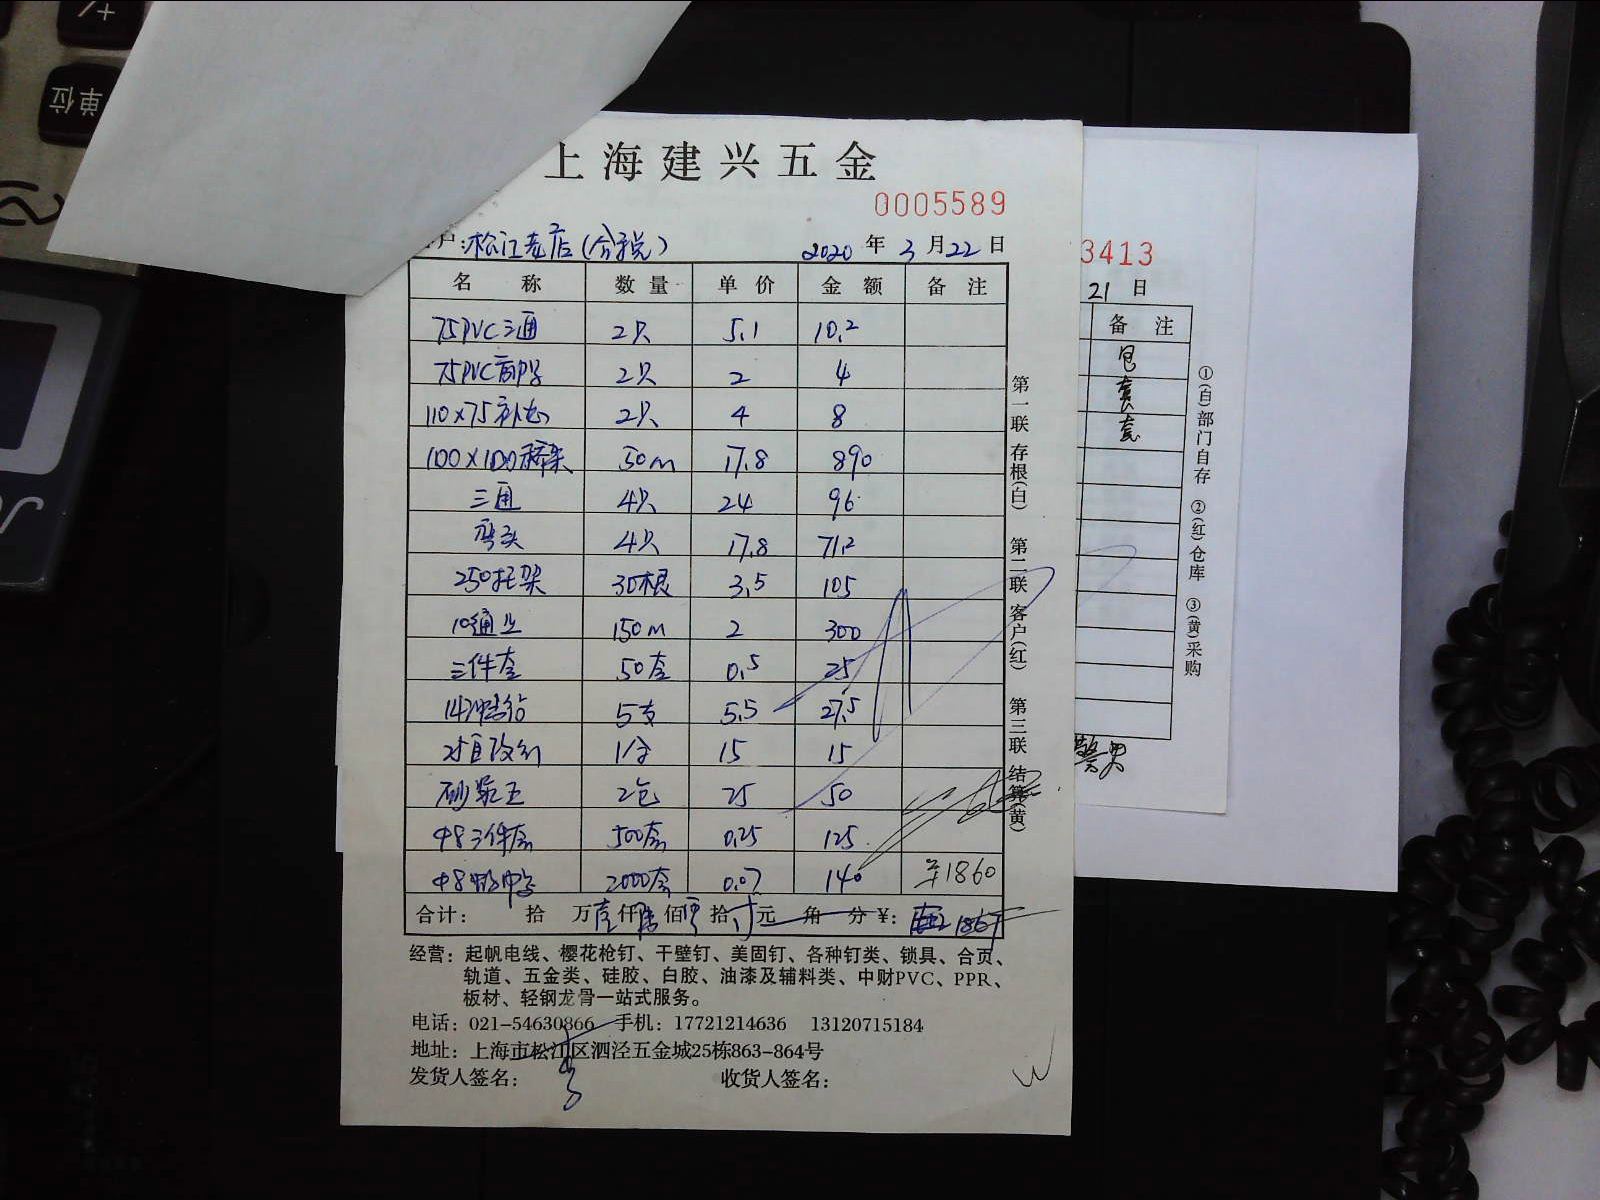 单位
上海建兴五金
0005589
户:松江老店(含税) 2020年3月22日
名称 数量 单价 金额 备注
75PVC三通 2只 5.1 10.2
75PVC 2只 2 4
110×75补芯 2只 4 8
100×100桥架 50m 17.8 890
三通 4只 24 96
弯头 4只 17.8 71.2
250托架 30根 3.5 105
10通丝 150m 2 300
三件套 50套 0.5 25
14冲击钻 5支 5.5 27.5
25 1 15 15
砂浆王 2包 25 50
φ8三件套 500套 0.25 125
φ8 2000套 0.07 140 ¥1860
合计: 拾 万壹仟 佰 拾 元 角 分 ¥: 1867
第一联 存根(白) 第二联 客户(红) 第三联 结算(黄)
经营:起帆电线、樱花枪钉、干壁钉、美固钉、各种钉类、锁具、合页、
轨道、五金类、硅胶、白胶、油漆及辅料类、中财PVC、PPR、
板材、轻钢龙骨一站式服务。
电话:021-54630866 手机:17721214636 13120715184
地址:上海市松江区泗泾五金城25栋863-864号
发货人签名: 收货人签名:
3413
21日
备注
包
套
套
①(白)部门自存 ②(红)仓库 ③(黄)采购